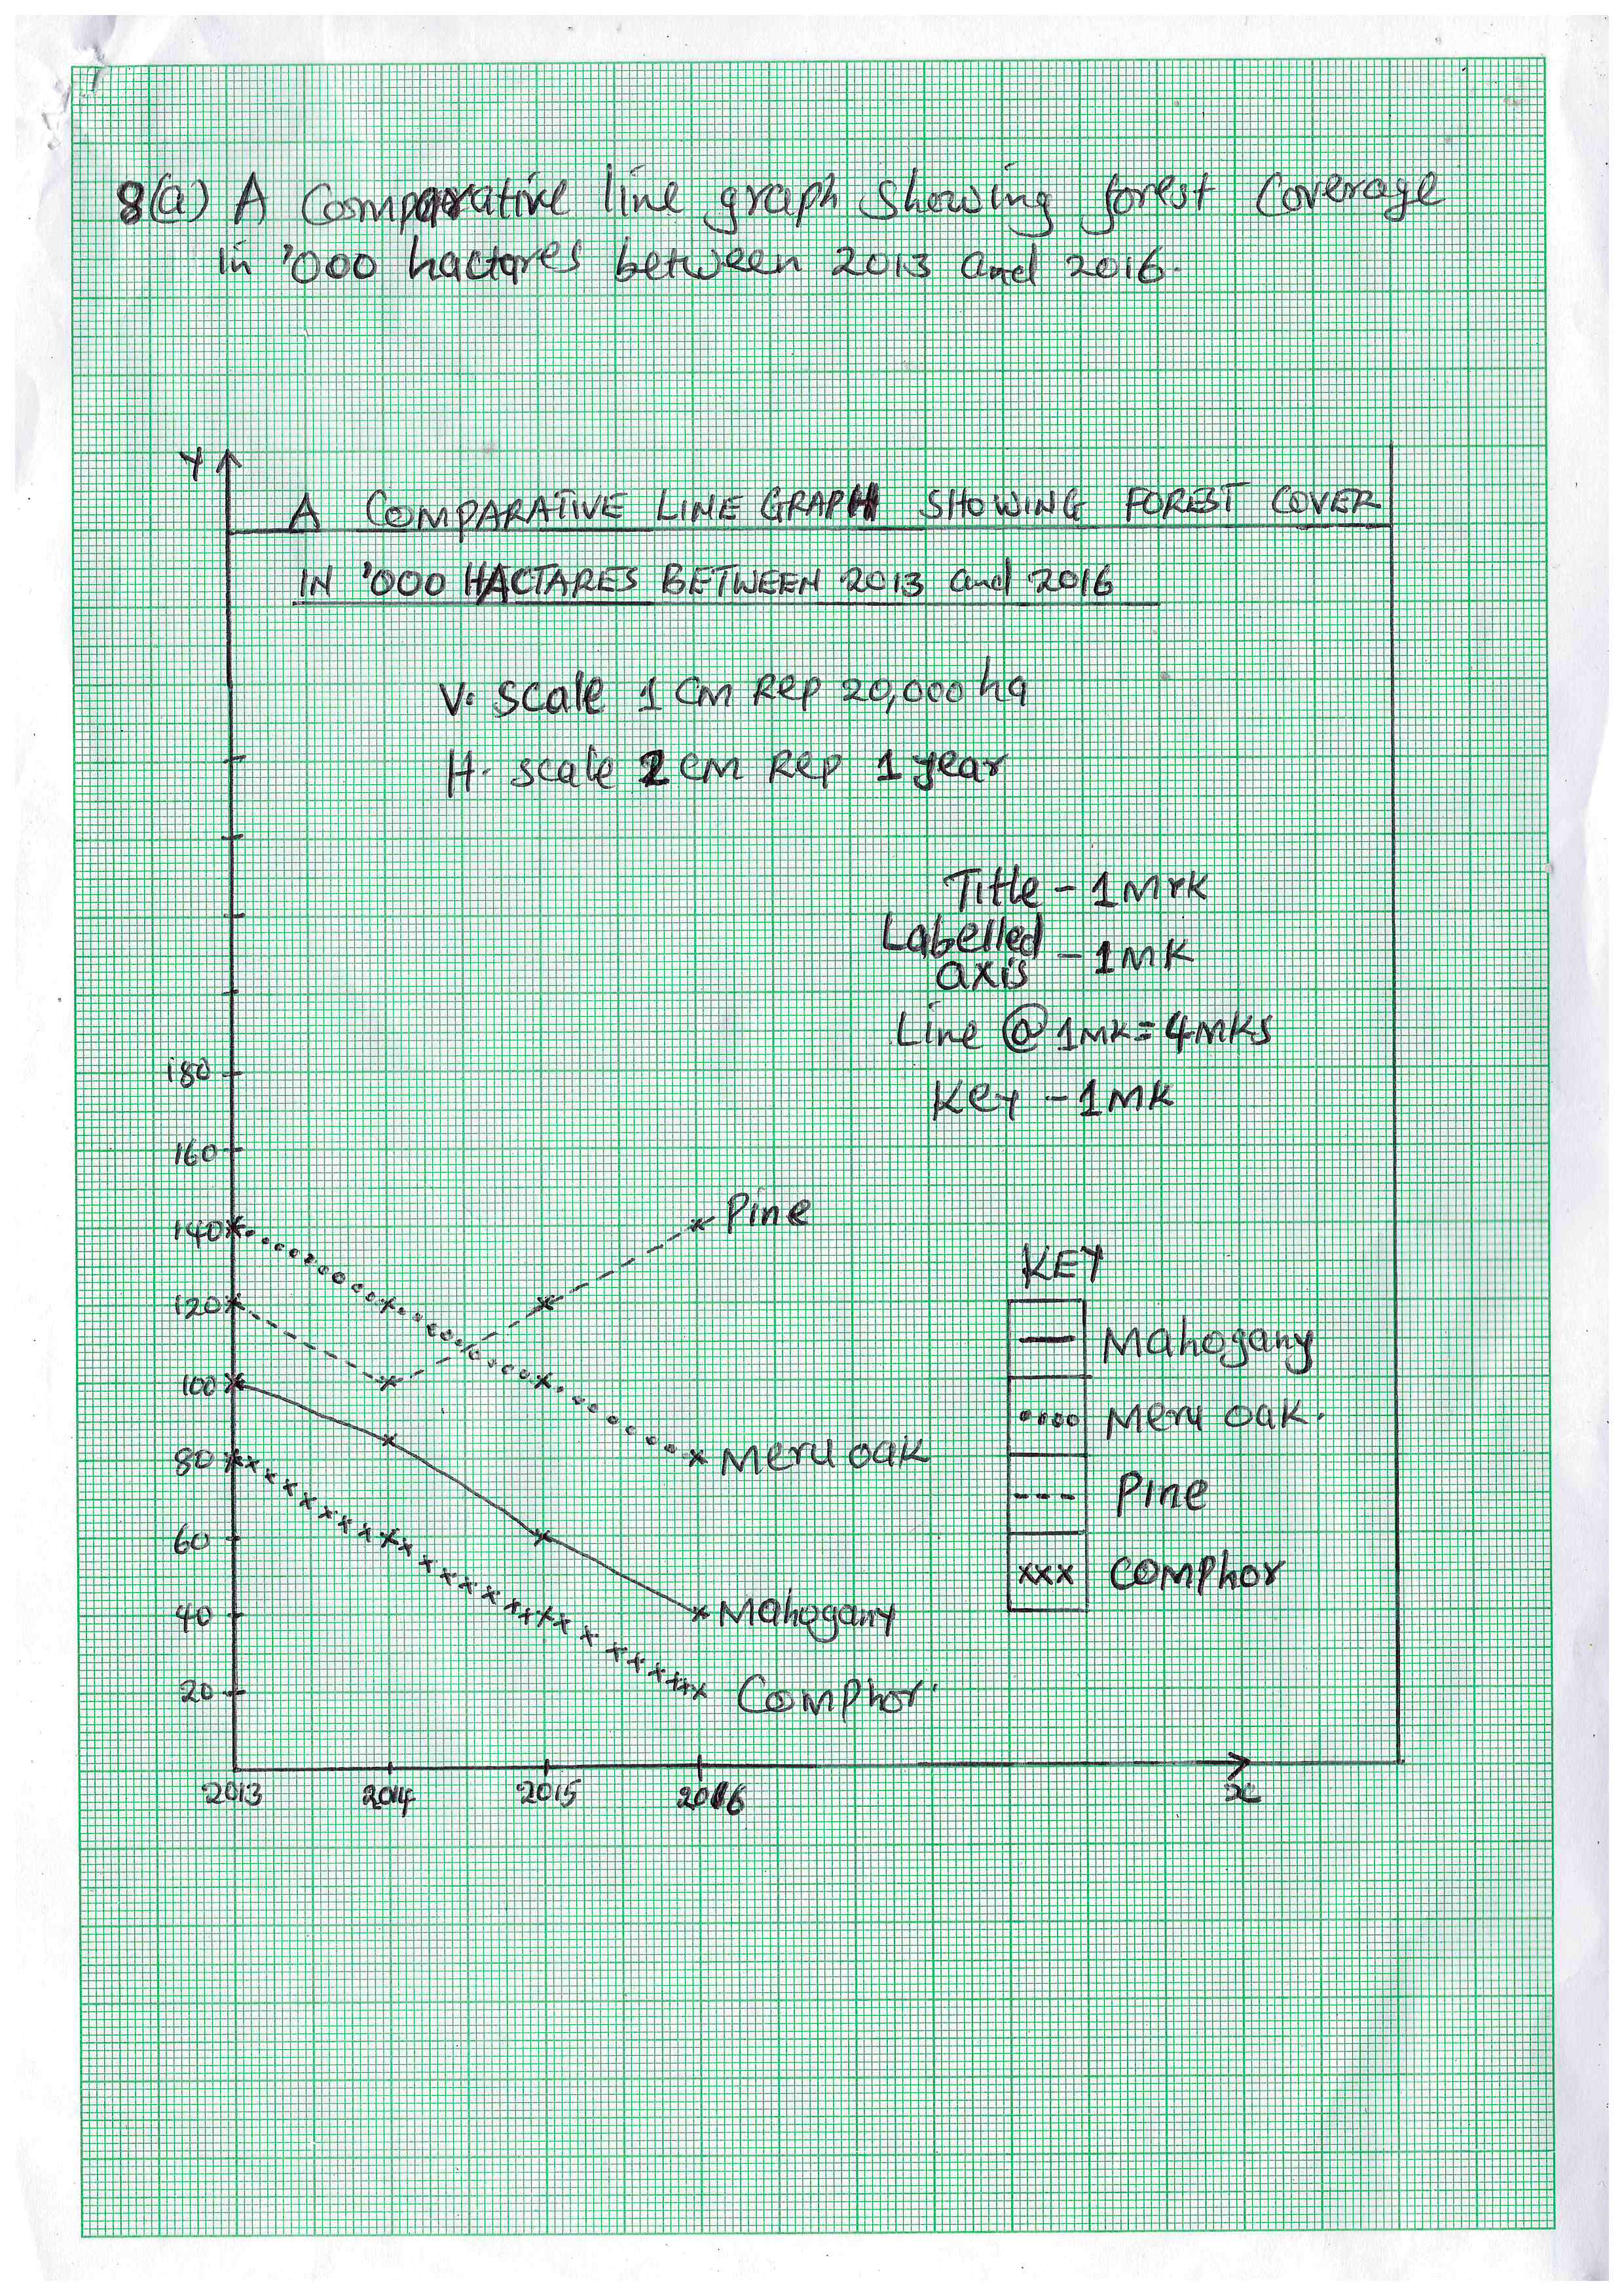 8(a) A Comparative line graph showing forest coverage
in '000 hactares between 2013 and 2016.
Y
A COMPARATIVE LINE GRAPH SHOWING FOREST COVER
IN '000 HACTARES BETWEEN 2013 and 2016
V. scale 1 cm Rep 20,000 ha
H. scale 2 cm Rep 1 year
Title - 1 Mrk
Labelled
axis - 1 MK
Line @ 1MK = 4 MKS
Key - 1 MK
180
160
140
120
100
80
60
40
20
Pine
Meru oak
Mahogany
Comphor
KEY
Mahogany
Meru oak.
Pine
xxx comphor
2013 2014 2015 2016 x